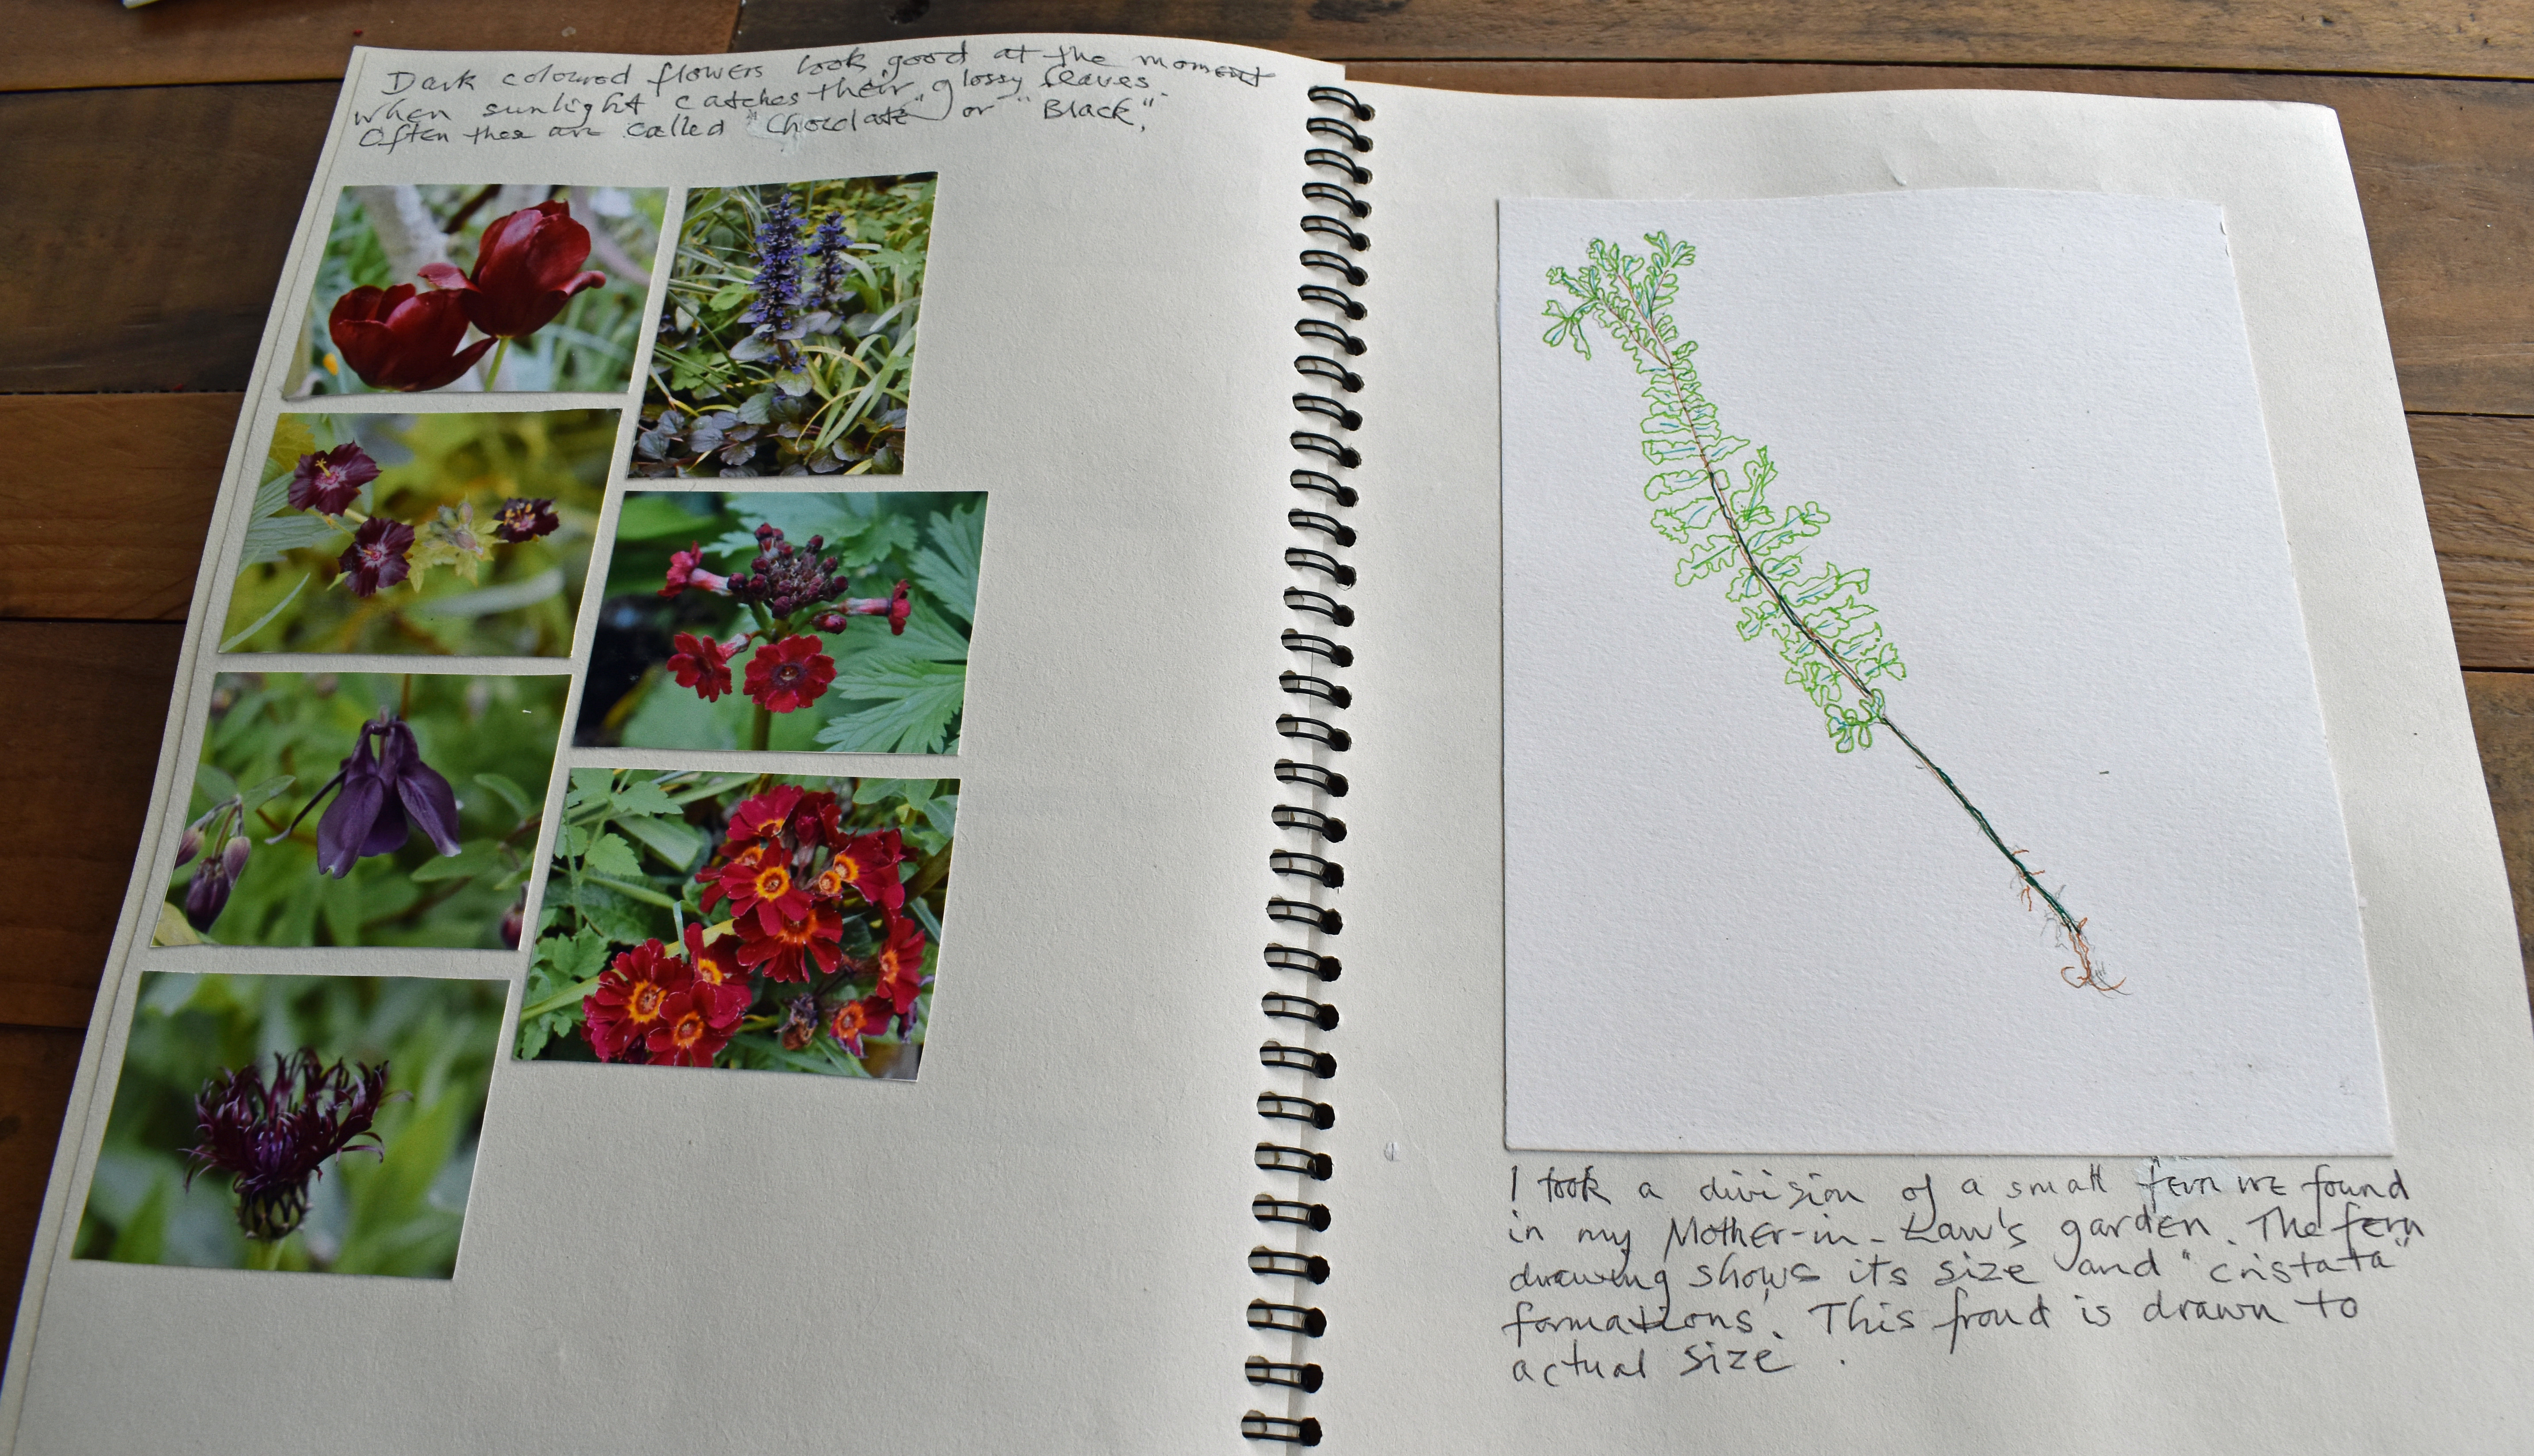 Dark coloured flowers look good at the moment
when sunlight catches their glossy leaves.
Often thes are called "Choclate" or "Black".
I took a division of a small fern we found
in my Mother-in-Law's garden. The fern
drawing shows its size and "cristata"
formations. This frond is drawn to
actual size.